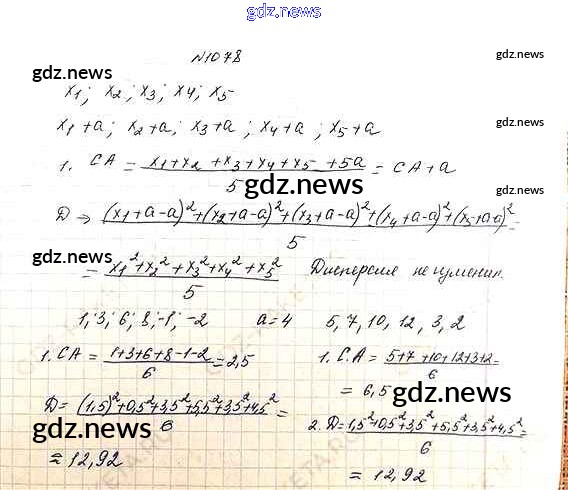 gdz.news
№1078
gdz.news
gdz.news
x₁; x₂; x₃; x₄; x₅
x₁+a; x₂+a; x₃+a; x₄+a; x₅+a
gdz.news
1. СА = (x₁+x₂+x₃+x₄+x₅+5a)/5 = СА+a
gdz.news
D → ((x₁+a-a)²+(x₂+a-a)²+(x₃+a-a)²+(x₄+a-a)²+(x₅+a-a)²)/5 =
gdz.news
= (x₁²+x₂²+x₃²+x₄²+x₅²)/5 Дисперсия не изменин.
1; 3; 6; 8; -1; -2 a=4 5, 7, 10, 12, 3, 2
1. СА = (1+3+6+8-1-2)/6 = 2,5
1. С.А = (5+7+10+12+3+2)/6 =
= 6,5
gdz.news
D = ((1,5)²+0,5²+3,5²+5,5²+3,5²+4,5²)/6 =
≈ 12,92
gdz.news
2. D = (1,5²+0,5²+3,5²+5,5²+3,5²+4,5²)/6 =
≈ 12,92
gdz.news